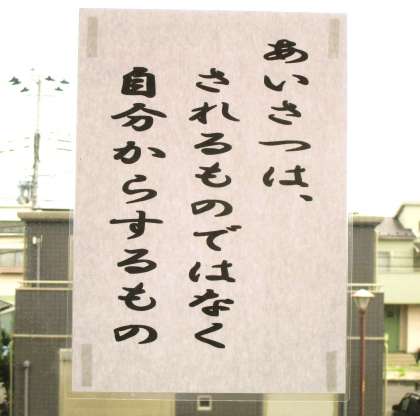 あいさつは、
されるものではなく
自分からするもの